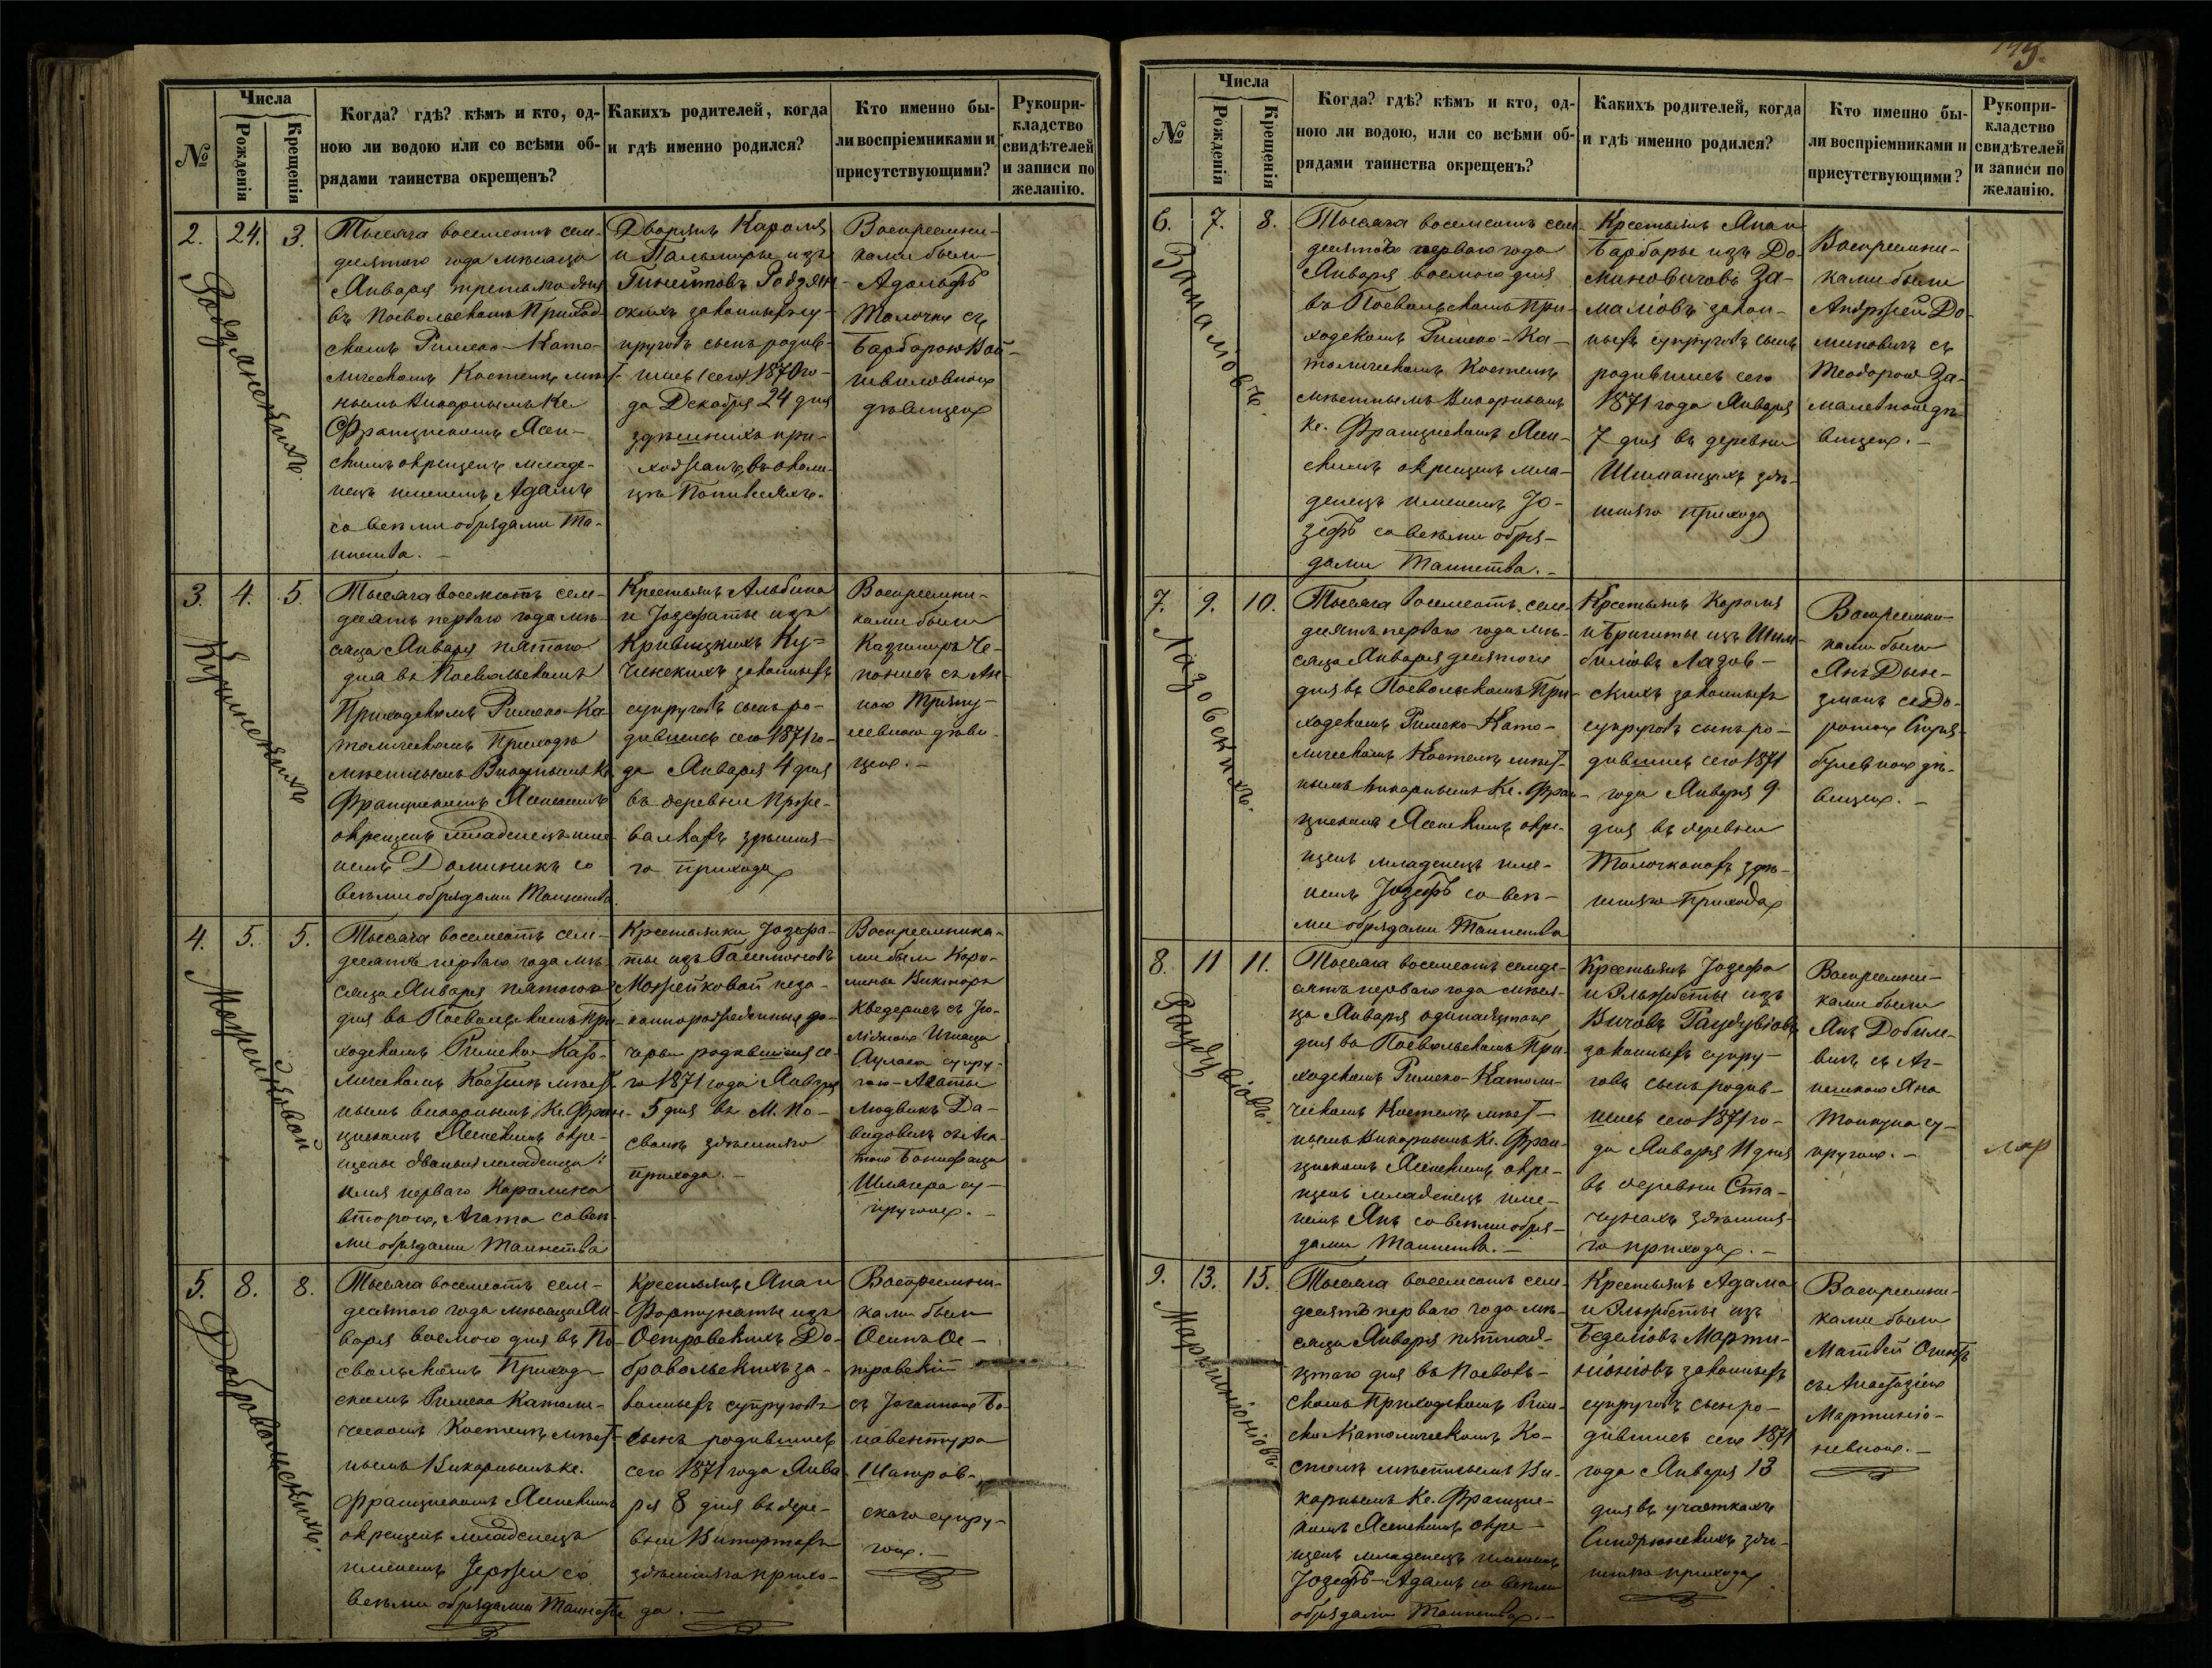 №
Числа
Рожденія
Крещенія
Когда? гдѣ? кѣмъ и кто, од-
ною ли водою или со всѣми об-
рядами таинства окрещенъ?
Какихъ родителей, когда
и гдѣ именно родился?
Кто именно бы-
ли воспріемниками и
присутствующими?
Рукопри-
кладство
свидѣтелей
и записи по
желанію.
2.
24.
3.
Тысяча восемсотъ сем-
десятого года мѣсяца
Января третьяго дня
въ Посвольскомъ Приход-
скомъ Римско-Като-
лическомъ Костелѣ мѣст-
нымъ Викарнымъ Кс
Францискомъ Ясен-
скимъ окрещенъ младе-
нецъ именемъ Адамъ
со всѣми обрядами Та-
инства. —
Дворянъ Кароля
и Пальмиры изъ
Гинейтовъ Родзян-
скихъ законныхъ су-
пруговъ сынъ родив-
шись (сего) 1870 го-
да Декабря 24 дня
здѣшнихъ при-
хожанъ въ околи-
цѣ
Воспреемни-
ками были
Адольфъ
Толочко съ
Барборою Вой-
дѣвицею
3.
4.
5.
Тысяча восемсотъ сем-
десятъ перваго года мѣ-
сяца Января пятого
дня въ Посвольскомъ
Приходскомъ Римско-Ка-
толическомъ Приходѣ
мѣстнымъ Викарнымъ Кс
Францискомъ Ясенскимъ
окрещенъ младенецъ име-
немъ Доминикъ со
всѣми обрядами Таинства.
Крестьянъ Альбина
и Іозефаты изъ
Кривицкихъ Ку-
чинскихъ законныхъ
супруговъ сынъ ро-
дившись сего 1871 го-
да Января 4 дня
въ деревни
здѣшня-
го прихода
Воспреемни-
ками были
Казимиръ Че-
понисъ съ Ан-
ною
дѣви-
цею. —
Кучинскихъ
4.
5.
5.
Тысяча восемсотъ сем-
десятъ перваго года мѣ-
сяца Января пятого
дня въ Посвольскомъ При-
ходскомъ Римско-Като-
лическомъ Костелѣ мѣст-
нымъ викарнымъ Кс. Фран-
цискомъ Ясенскимъ окре-
щены двойни младенца:
имя перваго Каролина
второго, Агата со всѣ-
ми обрядами Таинства
Крестьянки Іозефа-
ты изъ
Можейковой неза-
коннорожденныя до-
чери родившіяся се-
го 1871 года Января
5 дня въ М. По-
сволѣ здѣшняго
прихода. —
Воспреемника-
ми были Каро-
лины Викторъ
съ Ю-
супру-
гою — Агаты
Людвикъ Да-
видовичъ съ Ага-
тою Бонифація
су-
пругою. —
Можейковой
5.
8.
8.
Тысяча восемсотъ сем-
десятого года мѣсяца Ян-
варя восмого дня въ По-
свольскомъ Приход-
скомъ Римско Католи-
ческомъ Костелѣ мѣст-
нымъ Викарнымъ кс.
Францискомъ Ясенскимъ
окрещенъ младенецъ
именемъ Іержій со
всѣми обрядами Таинства
Крестьянъ Яна и
Фортунаты изъ
Островскихъ До-
бровольскихъ за-
конныхъ супруговъ
сынъ родившись
сего 1871 года Янва-
ря 8 дня въ дере-
вни
здѣшняго прихо-
да. —
Воспреемни-
ками были
Осипъ Ос-
тровскій
съ Іоганною Бо-
навентура
скаго супру-
гою. —
Добровольскихъ.
№
Числа
Рожденія
Крещенія
Когда? гдѣ? кѣмъ и кто, од-
ною ли водою, или со всѣми об-
рядами таинства окрещенъ?
Какихъ родителей, когда
и гдѣ именно родился?
Кто именно бы-
ли воспріемниками и
присутствующими?
Рукопри-
кладство
свидѣтелей
и записи по
желанію.
6.
7.
8.
Тысяча восемсотъ сем-
десятъ перваго года
Января восмого дня
въ Посвольскомъ При-
ходскомъ Римско-Ка-
толическомъ Костелѣ
мѣстнымъ Викарнымъ
Кс. Францискомъ Ясен-
скимъ окрещенъ мла-
денецъ именемъ Іо-
зефъ со всѣми обря-
дами Таинства. —
Крестьянъ Яна и
Барборы изъ До-
миновичовъ За-
маліовъ закон-
ныхъ супруговъ сынъ
родившись сего
1871 года Января
7 дня въ деревни
здѣ-
шняго прихода
Воспреемни-
ками были
Андржей До-
миновичъ съ
Теодорою За-
дѣ-
вицею. —
Замаліовъ.
7.
9.
10.
Тысяча восемсотъ сем-
десятъ перваго года мѣ-
сяца Января десятого
дня въ Посвольскомъ При-
ходскомъ Римско-Като-
лическомъ Костелѣ мѣст-
нымъ викарнымъ Кс. Фран-
цискомъ Ясенскимъ окре-
щенъ младенецъ име-
немъ Іозефъ со всѣ-
ми обрядами Таинства
Крестьянъ Кароля
и Бригиты изъ Шим-
буліовъ Лазов-
скихъ законныхъ
супруговъ сынъ ро-
дившись сего 1871
года Января 9
дня въ деревни
Толочконяхъ здѣ-
шняго Прихода
Воспреемни-
ками были
Янъ
съ До-
ротою
дѣ-
вицею. —
Лазовскихъ.
8.
11
11.
Тысяча восемсотъ семде-
сятъ перваго года мѣся-
ца Января одинадцатого
дня въ Посвольскомъ При-
ходскомъ Римско-Католи-
ческомъ Костелѣ мѣст-
нымъ Викарнымъ Кс. Фран-
цискомъ Ясенскимъ окре-
щенъ младенецъ име-
немъ Янъ со всѣми обря-
дами Таинства. —
Крестьянъ Іозефа
и Эльжбеты изъ
законныхъ супру-
говъ сынъ родив-
шись сего 1871 го-
да Января 11 дня
въ деревни Ста-
чунахъ здѣшня-
го прихода. —
Воспреемни-
ками были
Янъ
съ Аг-
нешкою Яна
су-
пругою. —
9.
13.
15.
Тысяча восемсотъ сем-
десятъ перваго года мѣ-
сяца Января пятнад-
цатого дня въ Посволь-
скомъ Приходскомъ Рим-
ско Католическомъ Ко-
стелѣ мѣстнымъ Ви-
карнымъ Кс. Францис-
комъ Ясенскимъ окре-
щенъ младенецъ именемъ
Іозефъ-Адамъ со всѣми
обрядами Таинства. —
Крестьянъ Адама
и Эльжбеты изъ
Беделіовъ Марти-
ніоніовъ законныхъ
супруговъ сынъ ро-
дившись сего 1871
года Января 13
дня въ участкахъ
здѣ-
шняго прихода
Воспреемни-
ками были
Матвей
съ Анастазіею
Мартиніо-
невною. —
Мартиніоніовъ.